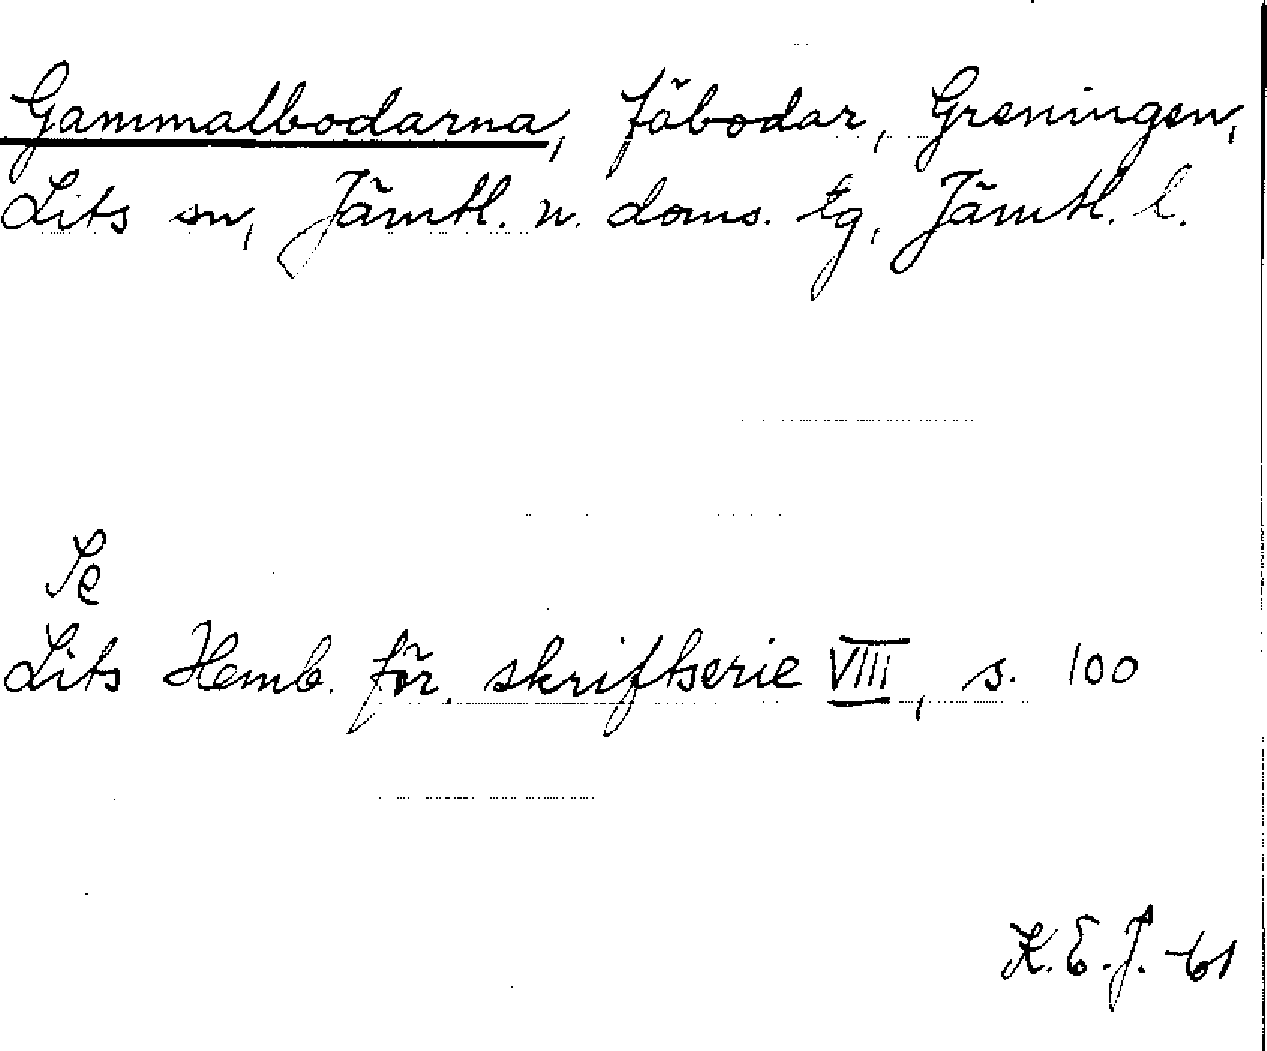 Gammalbodarna, fäbodar, Greningen,
Lits sn, Jämtl. n. doms. tg, Jämtl. l.
Se
Lits Hemb. för. skriftserie VIII, s. 100
K.E.J. -61